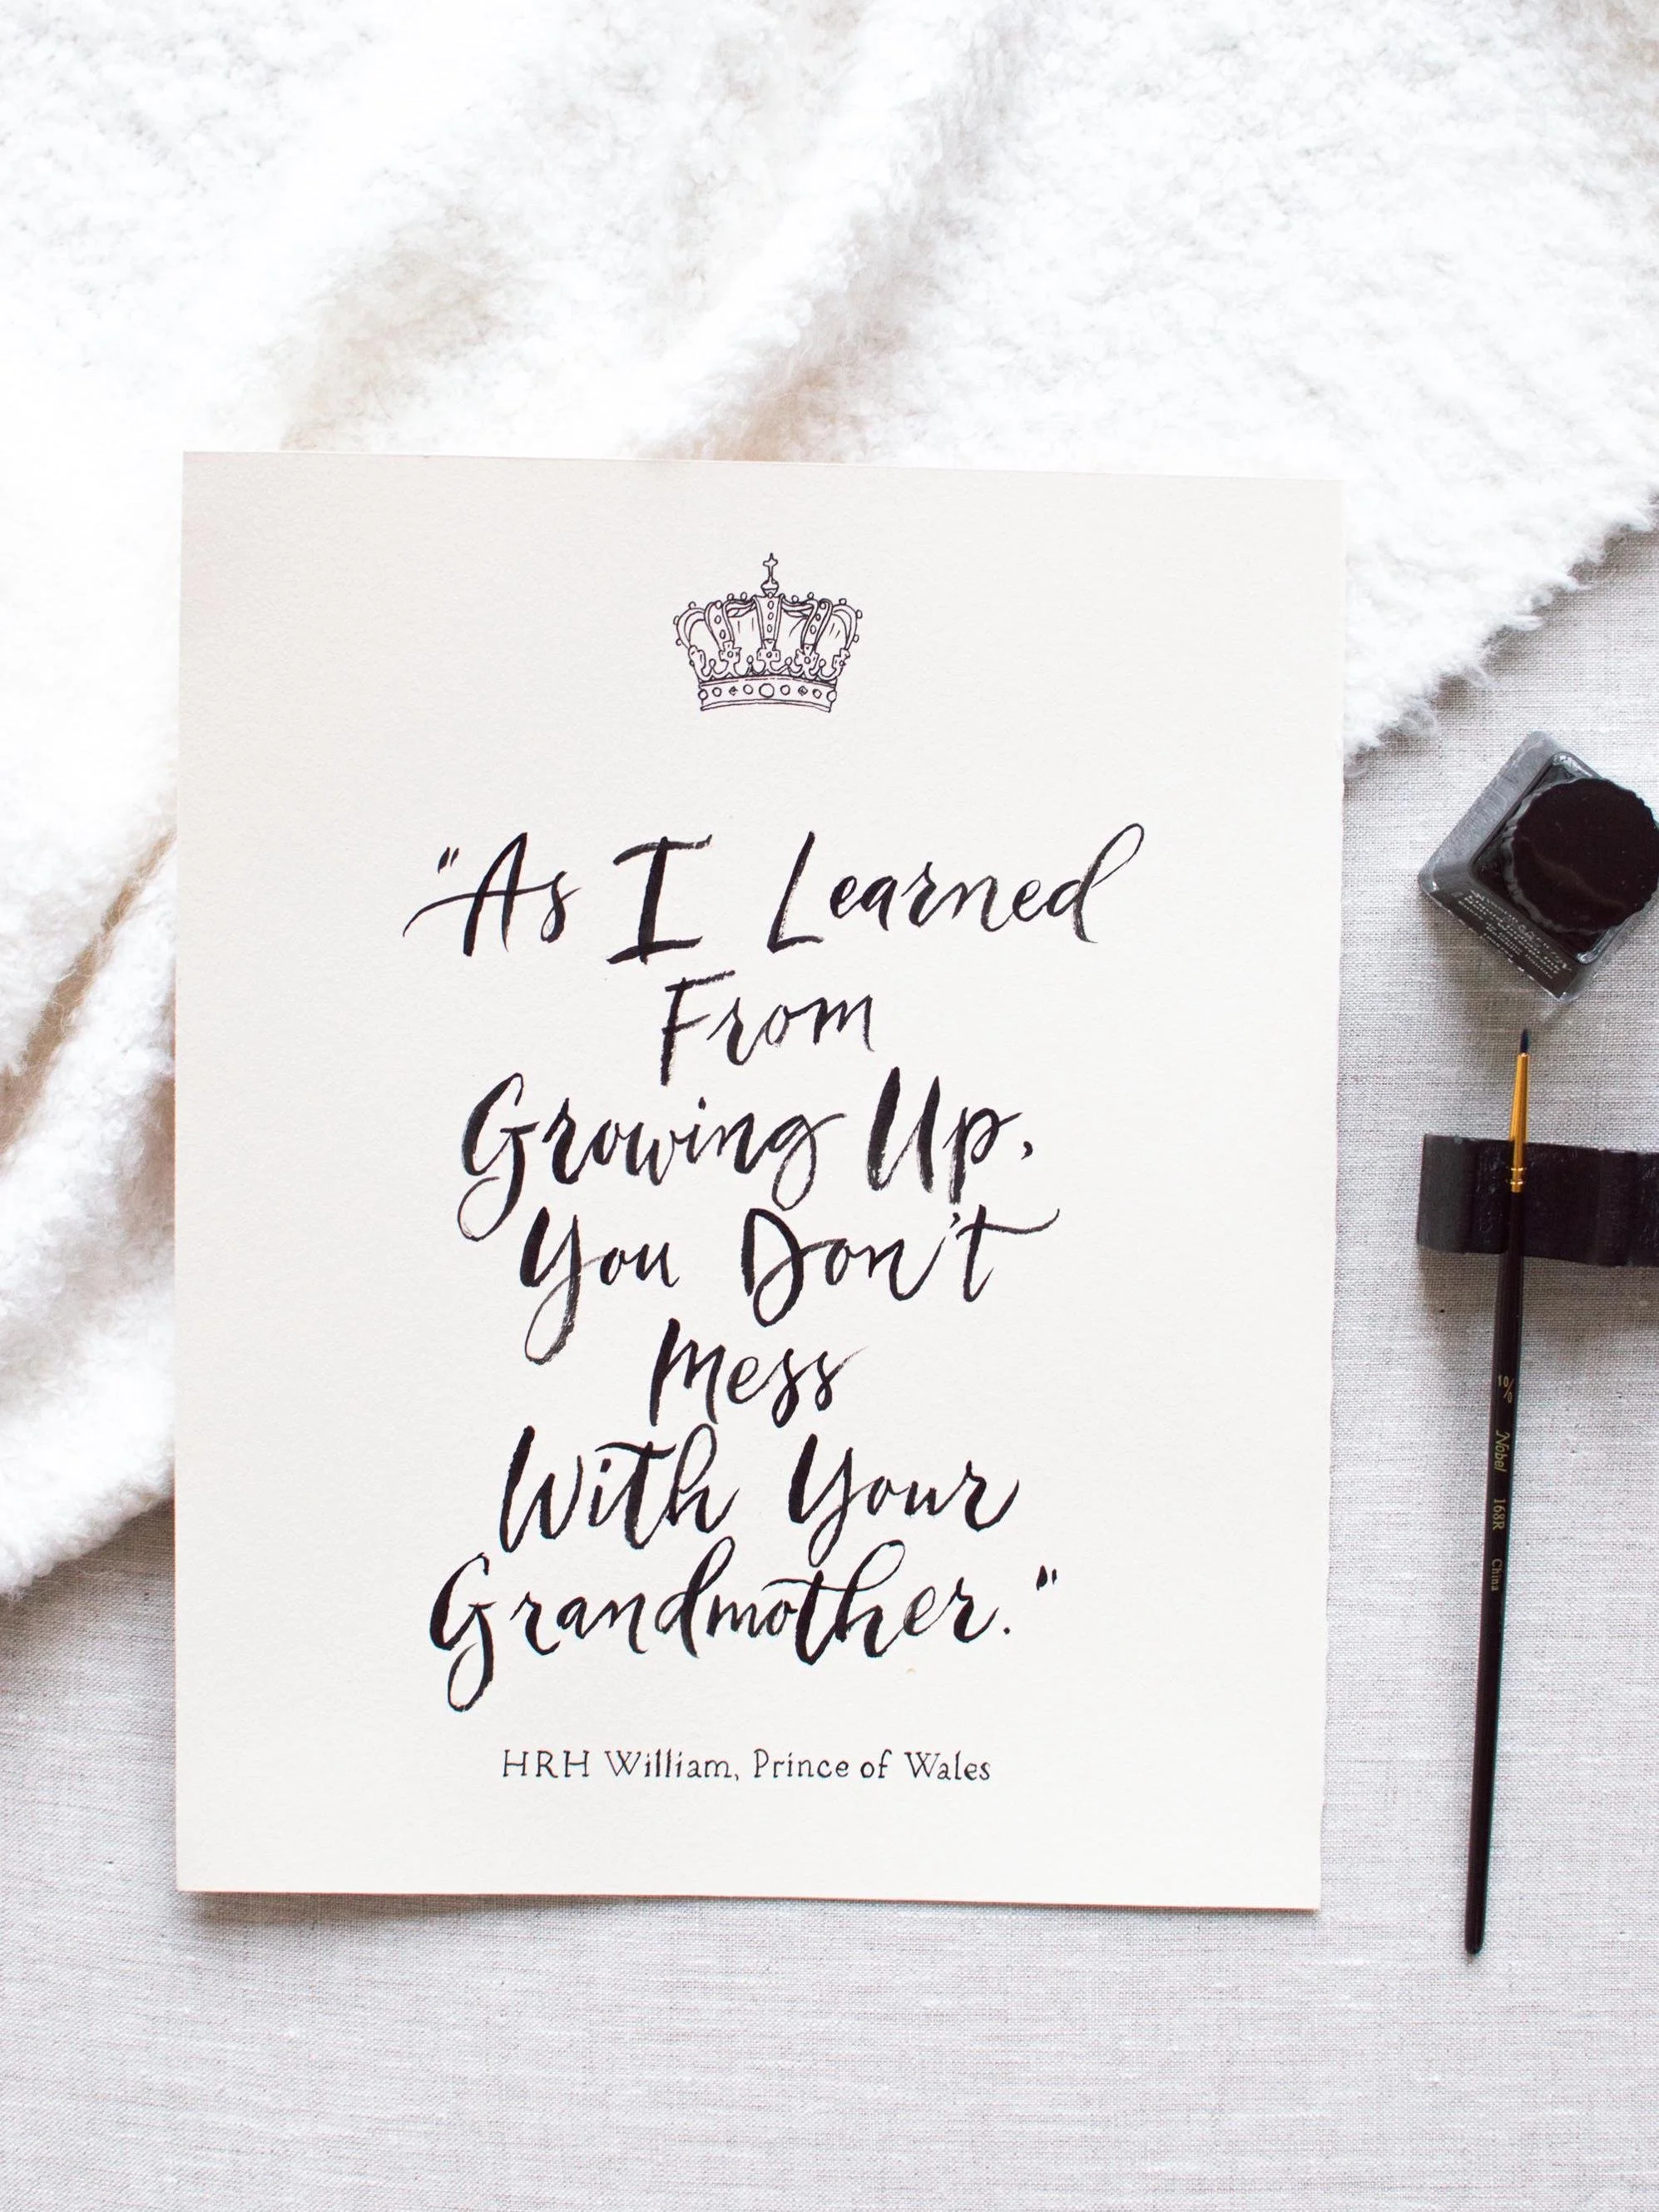 "As I Learned
From
Growing Up,
You Don't
Mess
With Your
Grandmother."
HRH William, Prince of Wales
10/0 Nobel 168R China